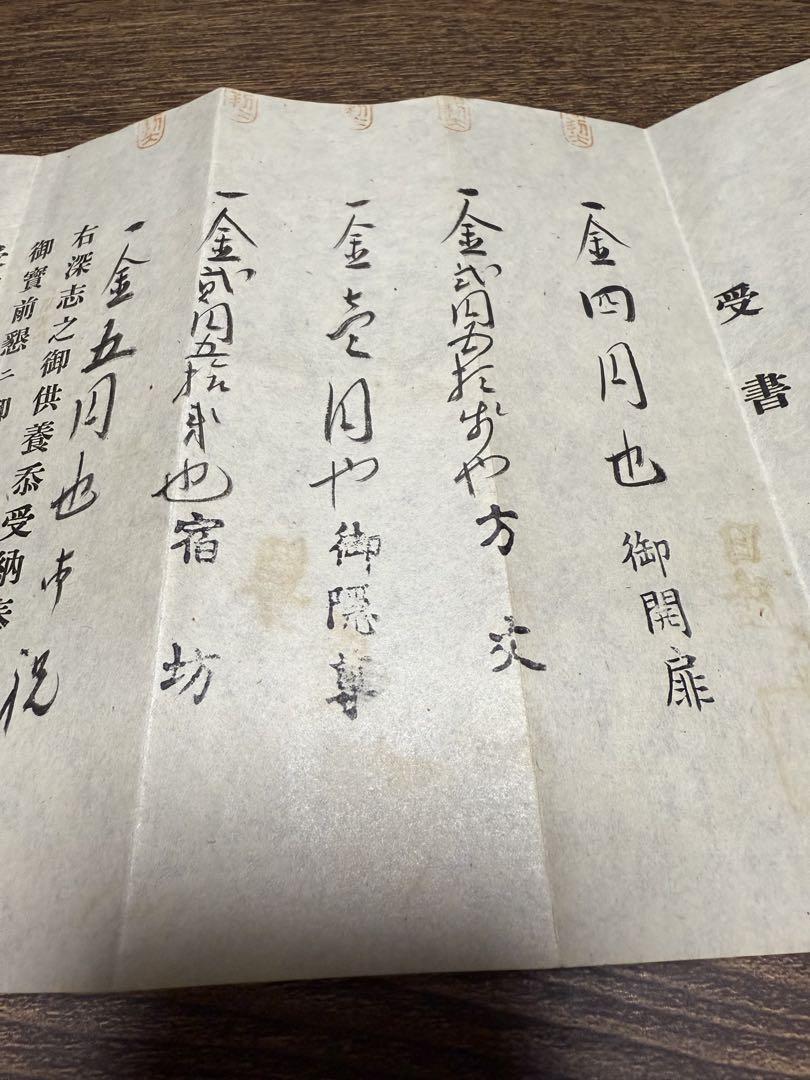 受書
一金四円也 御開扉
一金弐円五拾戋也 方丈
一金壱円也 御隠尊
一金弐円五拾戋也 宿坊
一金五円也
右深志之御供養忝受納
御寳前懇ニ御